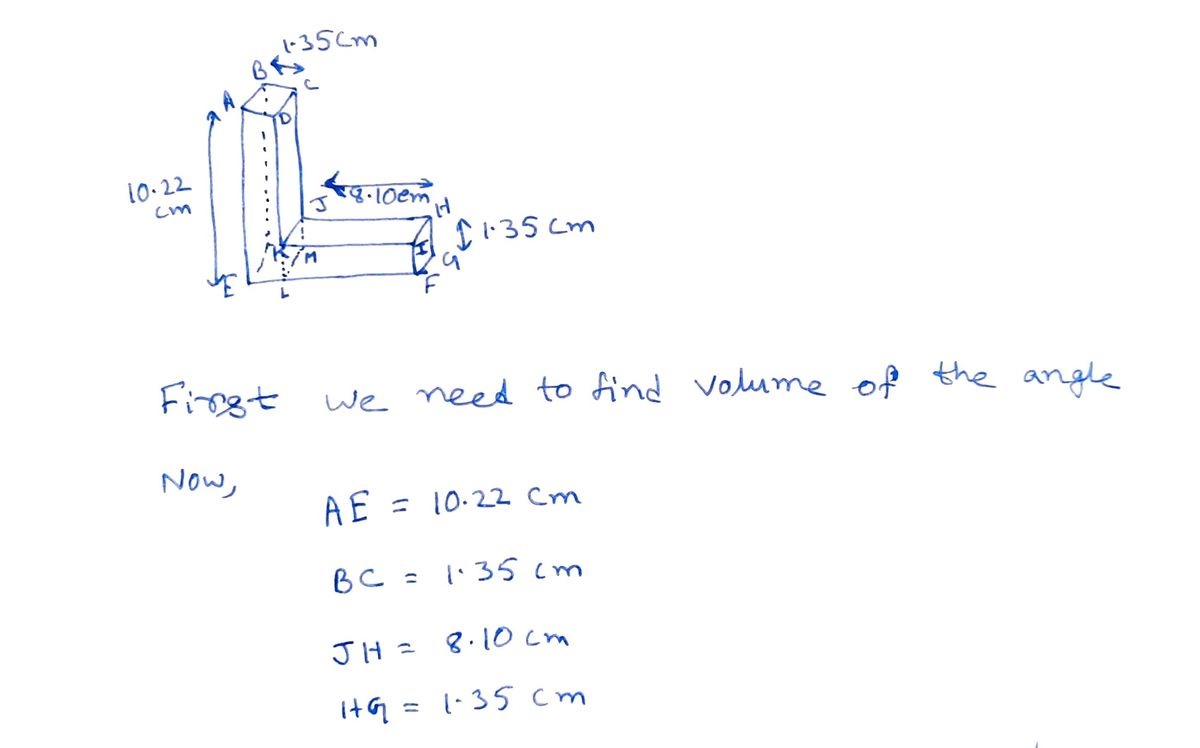 1.35cm
B
C
A
D
10.22
cm
8.10cm
J
H
1.35 cm
K
M
I
G
E
L
F
First we need to find volume of the angle
Now,
AE = 10.22 cm
BC = 1.35 cm
JH = 8.10 cm
HG = 1.35 cm